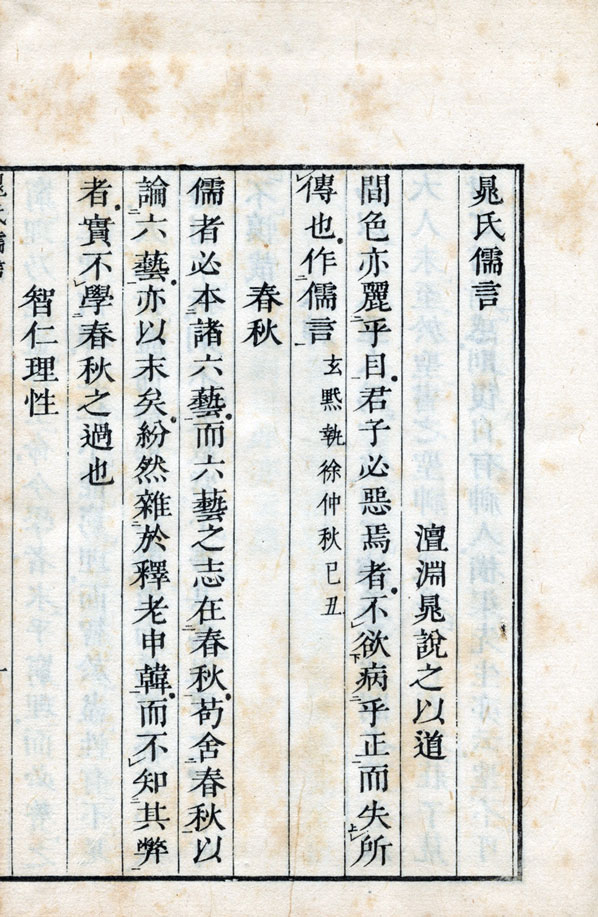 晁氏儒言
澶淵晁說之以道
間色亦麗乎目君子必惡焉者不欲病乎正而失所
傳也作儒言玄黓執徐仲秋己丑
春秋
儒者必本諸六藝而六藝之志在春秋苟舍春秋以
論六藝亦以末矣紛然雜於釋老申韓而不知其弊
者實不學春秋之過也
智仁理性